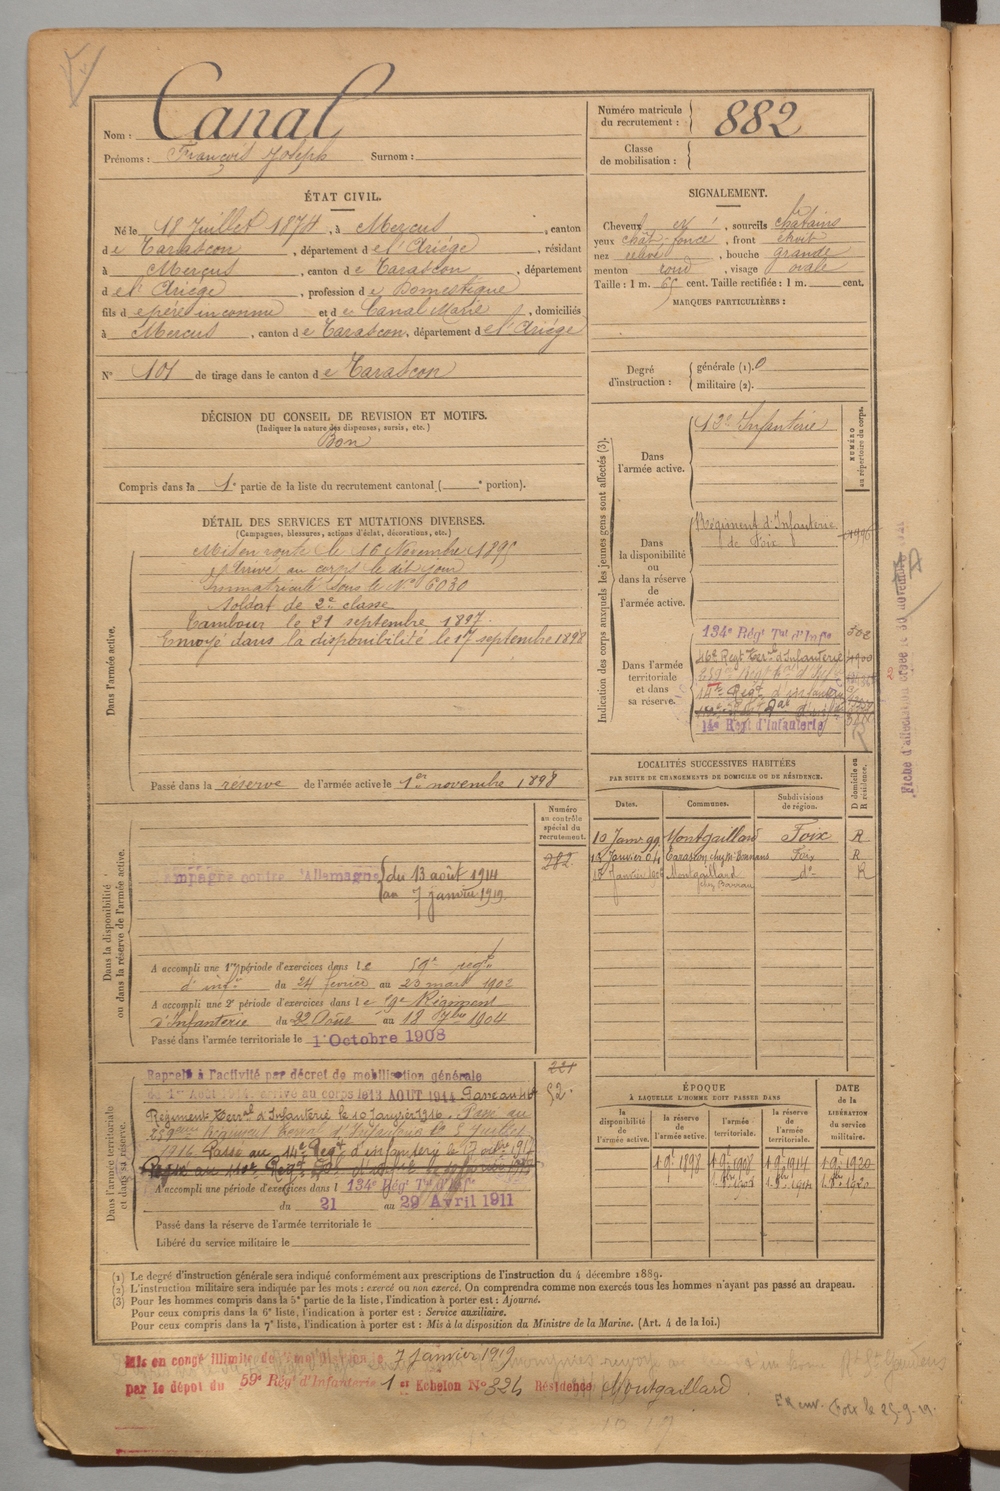 Nom : Canal
Prénoms : François Joseph Surnom :
Numéro matricule du recrutement : 882
Classe de mobilisation :
ÉTAT CIVIL.
Né le 18 Juillet 1874, à Mercus, canton
de Tarascon, département de l'Ariége, résidant
à Mercus, canton de Tarascon, département
de l'Ariége, profession de Domestique
fils de pere inconnu et de Canal Marie, domiciliés
à Mercus, canton de Tarascon, département de l'Ariége
N° 101 de tirage dans le canton de Tarascon
SIGNALEMENT.
Cheveux et, sourcils châtains
yeux chât. foncé, front étroit
nez, bouche grande
menton rond, visage ovale
Taille : 1 m. 65 cent. Taille rectifiée : 1 m. cent.
MARQUES PARTICULIÈRES :
Degré d'instruction : générale (1). 0
militaire (2).
DÉCISION DU CONSEIL DE REVISION ET MOTIFS.
(Indiquer la nature des dispenses, sursis, etc.)
Bon
Compris dans la 1e partie de la liste du recrutement cantonal ( e portion).
DÉTAIL DES SERVICES ET MUTATIONS DIVERSES.
(Campagnes, blessures, actions d'éclat, décorations, etc.)
Dans l'armée active.
Mis en route le 16 Novembre 1895
Arrivé au corps le dit jour
Immatriculé sous le N° 6030
Soldat de 2e classe
Tambour le 21 septembre 1897.
Envoyé dans la disponibilité le 17 septembre 1898
Passé dans la réserve de l'armée active le 1er novembre 1898
Indication des corps auxquels les jeunes gens sont affectés (3).
NUMÉRO au répertoire du corps.
Dans l'armée active.
12e Infanterie
Dans la disponibilité ou dans la réserve de l'armée active.
Régiment d'Infanterie
de Foix
Dans l'armée territoriale et dans sa réserve.
134e Régt Tal d'Infie
46e Regt Terr. d'Infanterie
14e Regt d'infanterie
14e Regt d'Infanterie
Fiche d'affectation créée le 30
Numéro au contrôle spécial du recrutement.
Dans la disponibilité ou dans la réserve de l'armée active.
282
Campagne contre l'Allemagne du 13 août 1914
au 7 janvier 1919
A accompli une 1re période d'exercices dans le 59e regt
d'infie du 24 fevrier au 23 mars 1902
A accompli une 2e période d'exercices dans le Régiment
d'Infanterie du 22 Août au 18 7bre 1904
Passé dans l'armée territoriale le 1 Octobre 1908
LOCALITÉS SUCCESSIVES HABITÉES
PAR SUITE DE CHANGEMENTS DE DOMICILE OU DE RÉSIDENCE.
D domicile ou R résidence.
Dates. Communes. Subdivisions de région.
10 Janv 99 Montgaillard Foix R
Janvier 04 Tarascon Foix R
Janvier Montgaillard do R
Dans l'armée territoriale et dans sa réserve.
221
52.
Rappelé à l'activité par décret de mobilisation générale
du 1er Août 1914. arrivé au corps le 13 AOUT 1914. Passé au 46e
Régiment Terral d'Infanterie le 10 Janvier 1916. Passé au
Régiment Terral d'Infanterie le Juillet
1916. Passé au 14e Regt d'infanterie le 1917
A accompli une période d'exercices dans l 134e Régt Tal d'Infie
du 21 au 29 Avril 1911
Passé dans la réserve de l'armée territoriale le
Libéré du service militaire le
ÉPOQUE
À LAQUELLE L'HOMME DOIT PASSER DANS
la disponibilité de l'armée active. la réserve de l'armée active. l'armée territoriale. la réserve de l'armée territoriale.
DATE de la LIBÉRATION du service militaire.
1 9e 1898 1 9e 1908 1 9e 1914 1 9e 1920
(1) Le degré d'instruction générale sera indiqué conformément aux prescriptions de l'instruction du 4 décembre 1889.
(2) L'instruction militaire sera indiquée par les mots : exercé ou non exercé. On comprendra comme non exercés tous les hommes n'ayant pas passé au drapeau.
(3) Pour les hommes compris dans la 5e partie de la liste, l'indication à porter est : Ajourné.
Pour ceux compris dans la 6e liste, l'indication à porter est : Service auxiliaire.
Pour ceux compris dans la 7e liste, l'indication à porter est : Mis à la disposition du Ministre de la Marine. (Art. 4 de la loi.)
Mis en congé illimité de démobilisation le 7 Janvier 1919
par le dépôt du 59e Régt d'Infanterie 1er Echelon N° 324 Résidence Montgaillard
Foix le 25-9-19.